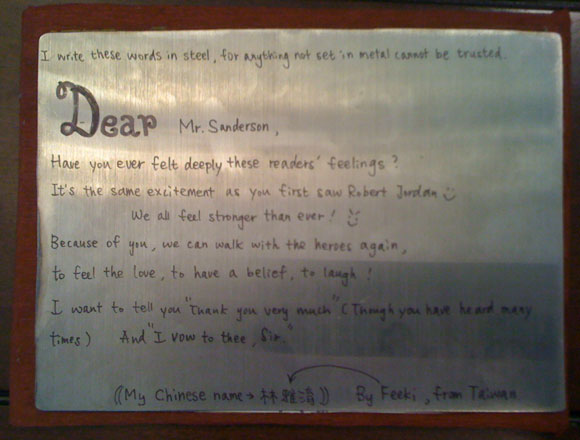 I write these words in steel, for anything not set in metal cannot be trusted.
Dear Mr. Sanderson,
Have you ever felt deeply these readers' feelings?
It's the same excitement as you first saw Robert Jordan
We all feel stronger than ever!
Because of you, we can walk with the heroes again,
to feel the love, to have a belief, to laugh!
I want to tell you "Thank you very much" (Though you have heard many
times) And "I vow to thee, Sir."
((My Chinese name→林雅淯)) By Feeki, from Taiwan